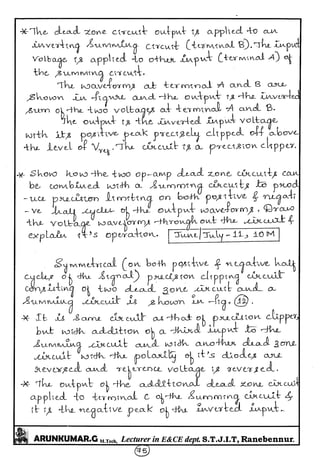 * The dead zone circuit output is applied to an
inverting Summing circuit (terminal B). The input
Voltage is applied to other input (terminal A) of
the summing circuit.
The waveforms at terminal A and B are
shown in figure and the output is the inverted
sum of the two voltages at terminal A and B.
The output is the inverted input voltage
with its positive peak precisely clipped off above
the level of VRef. The circuit is a precision clipper.
* Show how the two op-amp dead zone circuits can
be combined with a summing circuits to prod
-uce precision limiting on both positive & negati
-ve half cycles of the output waveforms. Draw
the voltage waveforms throughout the circuit &
explain it's operation. June/July-11, 10M
Symmetrical (on both positive & negative half
cycles of the signal) precision clipping circuit
consisting of two dead zone circuit and a
Summing circuit is shown in fig. (12).
* It is same circuit as that of precision clipper,
but with addition of a third input to the
summing circuit and with another dead zone
circuit with the polarity of it's diodes are
reversed and reference voltage is reversed.
* The output of the additional dead zone circuit
applied to terminal C of the Summing circuit &
it is the negative peak of the inverted input.
ARUNKUMAR.G M.Tech, Lecturer in E&CE dept. S.T.J.I.T, Ranebennur.
75